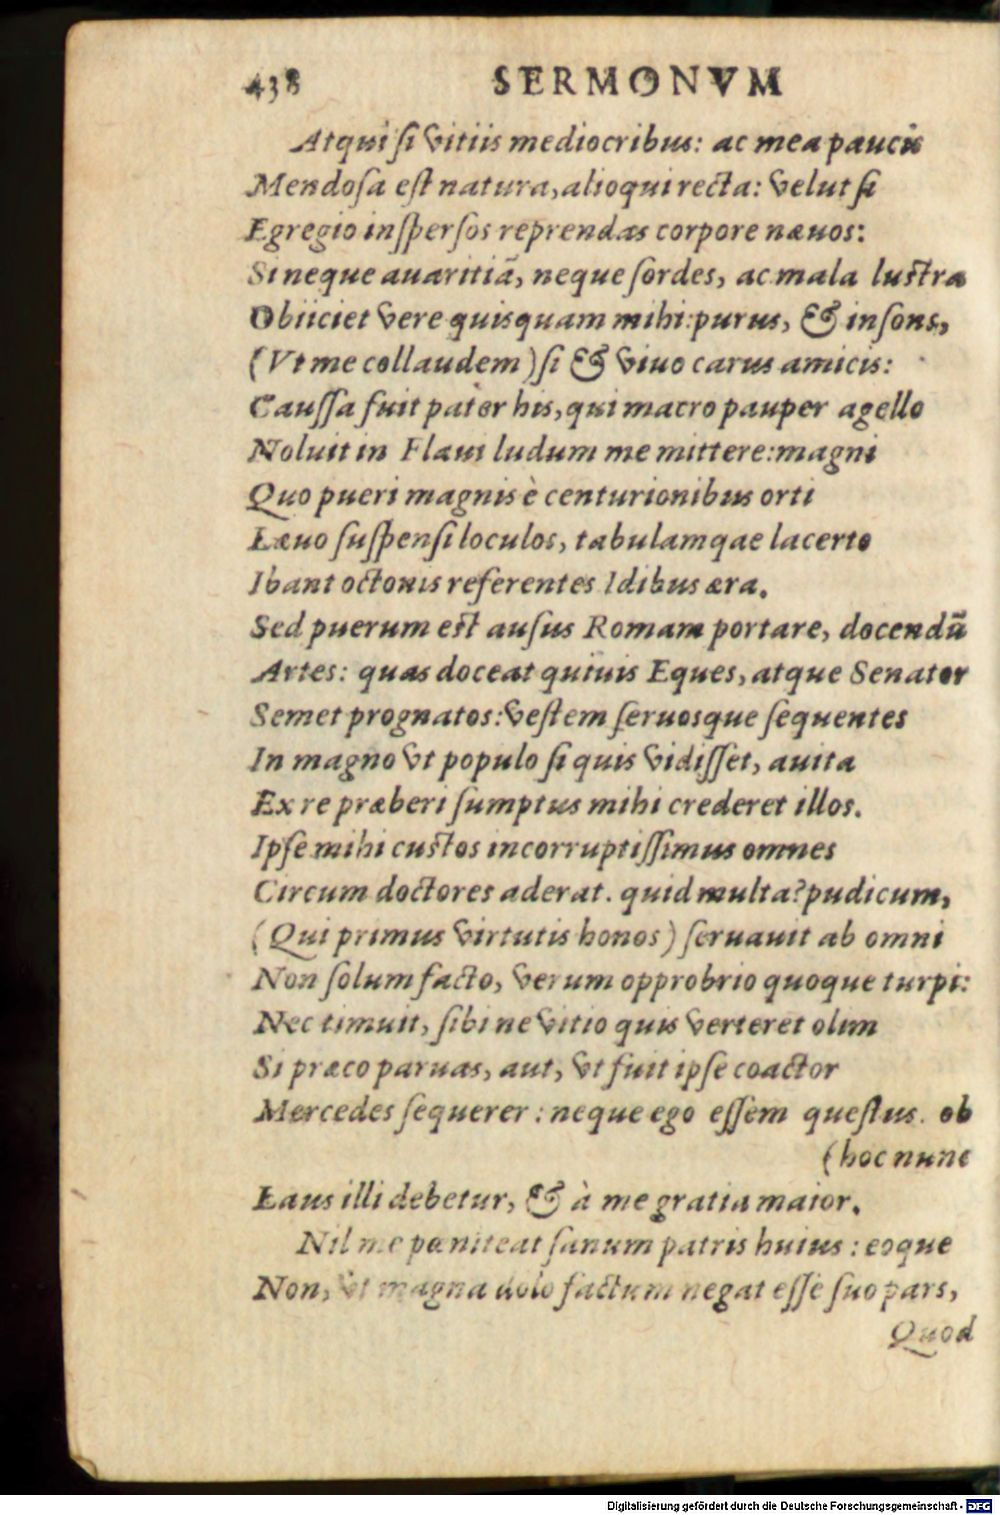 438 SERMONVM
Atqui si vitiis mediocribus: ac mea paucis
Mendosa est natura, alioqui recta: velut si
Egregio inspersos reprendas corpore næuos:
Si neque auaritiã, neque sordes, ac mala lustra
Obiiciet vere quisquam mihi: purus, & insons,
(Vt me collaudem) si & viuo carus amicis:
Caussa fuit pater his, qui macro pauper agello
Noluit in Flaui ludum me mittere: magni
Quo pueri magnis è centurionibus orti
Læuo suspensi loculos, tabulamqae lacerto
Ibant octonis referentes Idibus æra.
Sed puerum est ausus Romam portare, docendũ
Artes: quas doceat quiuis Eques, atque Senator
Semet prognatos: vestem seruosque sequentes
In magno vt populo si quis vidisset, auita
Ex re præberi sumptus mihi crederet illos.
Ipse mihi custos incorruptissimus omnes
Circum doctores aderat. quid multa? pudicum,
(Qui primus virtutis honos) seruauit ab omni
Non solum facto, verum opprobrio quoque turpi:
Nec timuit, sibi ne vitio quis verteret olim
Si præco paruas, aut, vt fuit ipse coactor
Mercedes sequerer: neque ego essem questus. ob
(hoc nunc
Laus illi debetur, & à me gratia maior.
Nil me pœniteat sanum patris huius: eoque
Non, vt magna dolo factum negat esse suo pars,
Quod
Digitalisierung gefördert durch die Deutsche Forschungsgemeinschaft - DFG